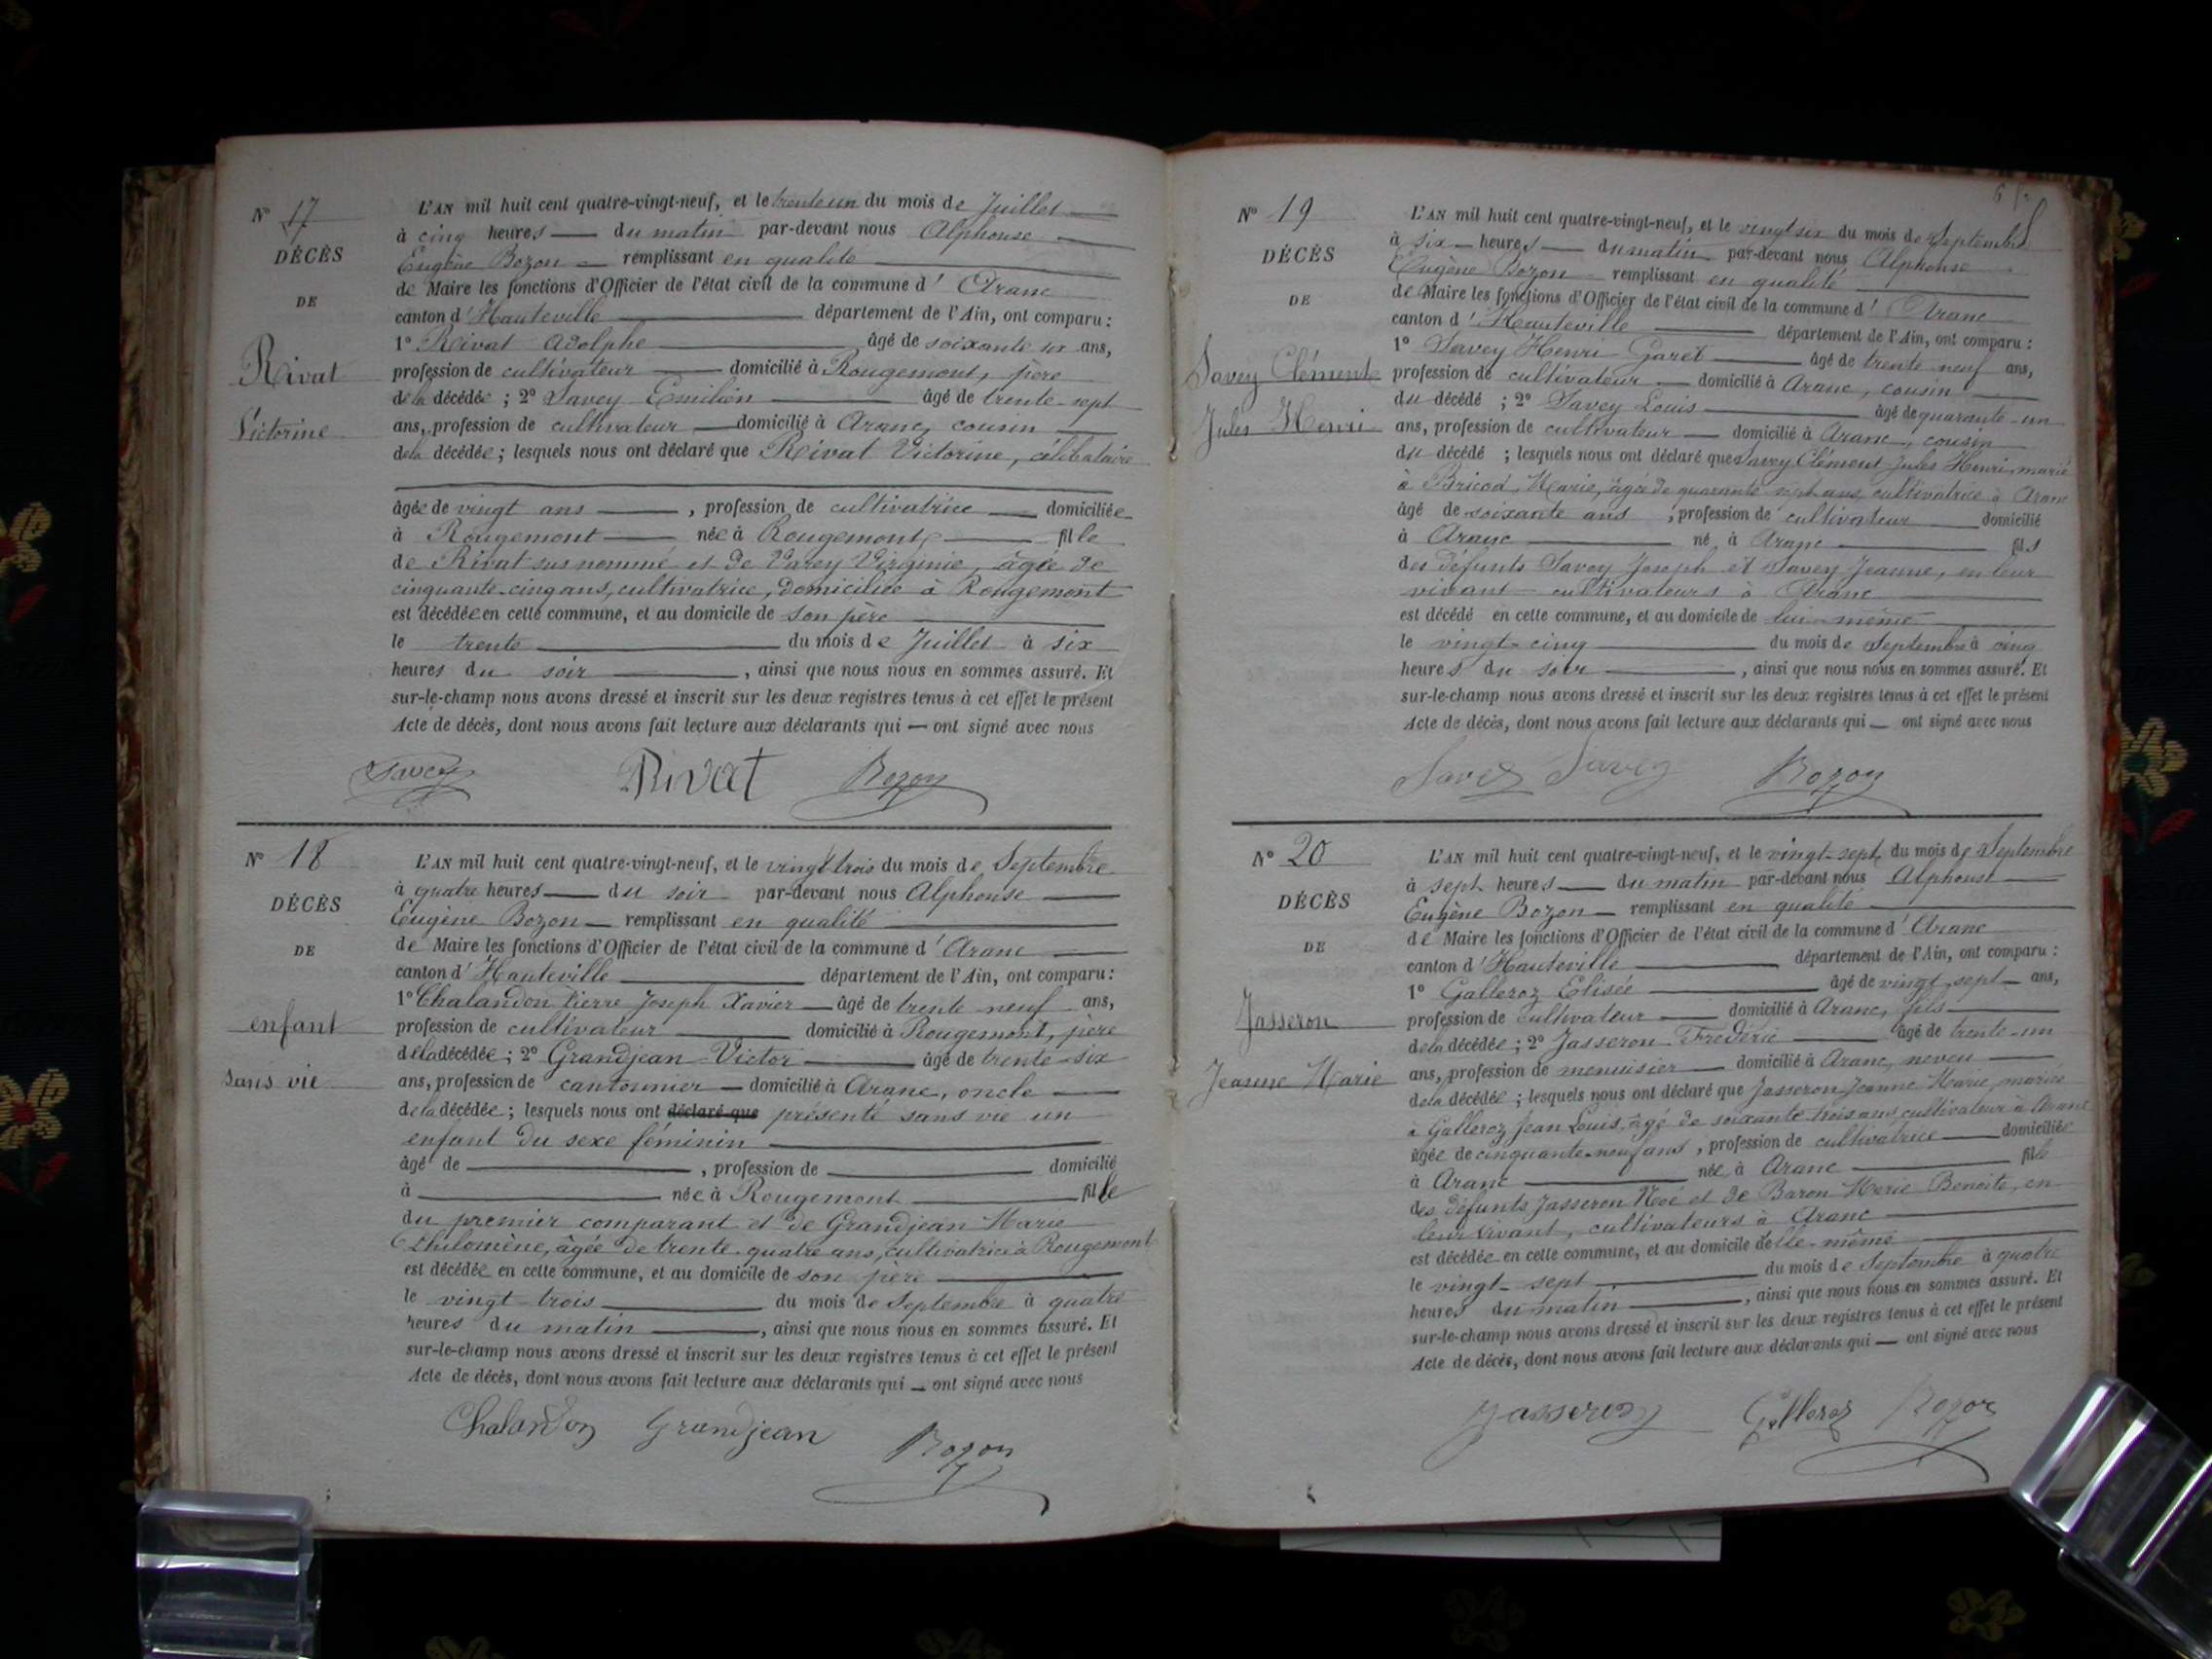 N° 17
DÉCÈS
DE
Rivat
Victorine
L'AN mil huit cent quatre-vingt-neuf, et le trente un du mois de Juillet
à cinq heures du matin par-devant nous Alphonse
Eugène Bozon remplissant en qualité
de Maire les fonctions d'Officier de l'état civil de la commune d' Aranc
canton d' Hauteville département de l'Ain, ont comparu :
1° Rivat Adolphe âgé de soixante six ans,
profession de cultivateur domicilié à Rougemont, père
de la décédée ; 2° Savey Emilien âgé de trente-sept
ans, profession de cultivateur domicilié à Aranc, cousin
de la décédée ; lesquels nous ont déclaré que Rivat Victorine, célibataire
âgée de vingt ans , profession de cultivatrice domiciliée
à Rougemont née à Rougemont fille
de Rivat sus nommé et de Varey Virginie, âgée de
cinquante-cinq ans, cultivatrice, domiciliée à Rougemont
est décédée en cette commune, et au domicile de son père
le trente du mois de Juillet à six
heures du soir , ainsi que nous nous en sommes assuré. Et
sur-le-champ nous avons dressé et inscrit sur les deux registres tenus à cet effet le présent
Acte de décès, dont nous avons fait lecture aux déclarants qui — ont signé avec nous
Savey Rivat Bozon
N° 18
DÉCÈS
DE
enfant
sans vie
L'AN mil huit cent quatre-vingt-neuf, et le vingt trois du mois de Septembre
à quatre heures du soir par-devant nous Alphonse
Eugène Bozon remplissant en qualité
de Maire les fonctions d'Officier de l'état civil de la commune d' Aranc
canton d' Hauteville département de l'Ain, ont comparu :
1° Chalandon Pierre Joseph Xavier âgé de trente neuf ans,
profession de cultivateur domicilié à Rougemont, père
de la décédée ; 2° Grandjean Victor âgé de trente-six
ans, profession de cantonnier domicilié à Aranc, oncle
de la décédée ; lesquels nous ont déclaré que présenté sans vie un
enfant du sexe féminin
âgé de , profession de domicilié
à née à Rougemont fille
du premier comparant et de Grandjean Marie
Philomène, âgée de trente-quatre ans, cultivatrice à Rougemont
est décédée en cette commune, et au domicile de son père
le vingt-trois du mois de Septembre à quatre
heures du matin , ainsi que nous nous en sommes assuré. Et
sur-le-champ nous avons dressé et inscrit sur les deux registres tenus à cet effet le présent
Acte de décès, dont nous avons fait lecture aux déclarants qui — ont signé avec nous
Chalandon Grandjean Bozon
N° 19
DÉCÈS
DE
Savey Clément
Jules Henri
L'AN mil huit cent quatre-vingt-neuf, et le vingt six du mois de Septembre
à six heures du matin par-devant nous Alphonse
Eugène Bozon remplissant en qualité
de Maire les fonctions d'Officier de l'état civil de la commune d' Aranc
canton d' Hauteville département de l'Ain, ont comparu :
1° Savey Henri Garet âgé de trente neuf ans,
profession de cultivateur domicilié à Aranc, cousin
du décédé ; 2° Savey Louis âgé de quarante-un
ans, profession de cultivateur domicilié à Aranc, cousin
du décédé ; lesquels nous ont déclaré que Savey Clément Jules Henri, marié
à Marie, âgée de quarante sept ans, cultivatrice à Aranc
âgé de soixante ans , profession de cultivateur domicilié
à Aranc né à Aranc fils
des défunts Savey Joseph et Savey Jeanne, en leur
vivant cultivateurs à Aranc
est décédé en cette commune, et au domicile de lui-même
le vingt-cinq du mois de Septembre à cinq
heures du soir , ainsi que nous nous en sommes assuré. Et
sur-le-champ nous avons dressé et inscrit sur les deux registres tenus à cet effet le présent
Acte de décès, dont nous avons fait lecture aux déclarants qui — ont signé avec nous
Savey Savey Bozon
N° 20
DÉCÈS
DE
Jasseron
Jeanne Marie
L'AN mil huit cent quatre-vingt-neuf, et le vingt-sept du mois de Septembre
à sept heures du matin par-devant nous Alphonse
Eugène Bozon remplissant en qualité
de Maire les fonctions d'Officier de l'état civil de la commune d' Aranc
canton d' Hauteville département de l'Ain, ont comparu :
1° Galleroz Elisée âgé de vingt-sept ans,
profession de cultivateur domicilié à Aranc, fils
de la décédée ; 2° Jasseron Frédéric âgé de trente-un
ans, profession de menuisier domicilié à Aranc, neveu
de la décédée ; lesquels nous ont déclaré que Jasseron Jeanne Marie, mariée
à Galleroz Jean Louis, âgé de soixante trois ans, cultivateur à Aranc
âgée de cinquante-neuf ans , profession de cultivatrice domiciliée
à Aranc née à Aranc fille
des défunts Jasseron Noé et de Baron Marie Benoite, en
leur vivant, cultivateurs à Aranc
est décédée en cette commune, et au domicile d'elle-même
le vingt-sept du mois de Septembre à quatre
heures du matin , ainsi que nous nous en sommes assuré. Et
sur-le-champ nous avons dressé et inscrit sur les deux registres tenus à cet effet le présent
Acte de décès, dont nous avons fait lecture aux déclarants qui — ont signé avec nous
Jasseron Galleroz Bozon